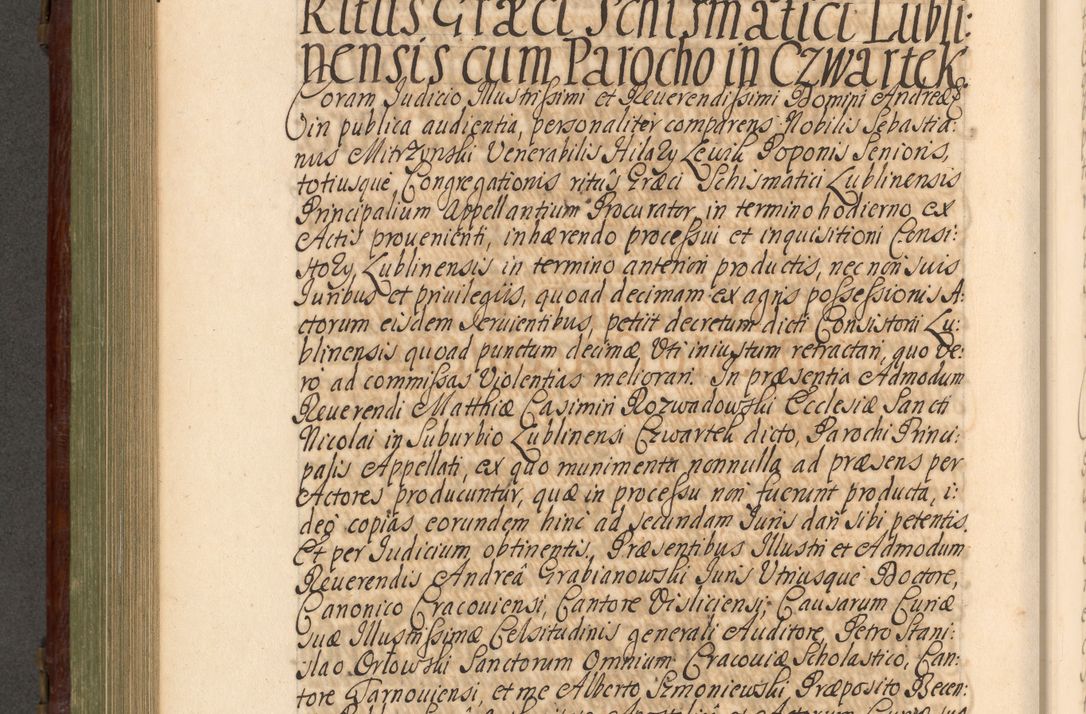 Ritus Græci Schismatici Lubli:
nensis cum Parocho in Czwartek
Coram Judicio Illustrissimi et Reuerendissimi Domini Andreæ
in publica audientia, personaliter comparens Nobilis Sebastia:
nus Mitrzynski Venerabilis Hilazy Lewik Poponis Senionis,
totiusque Congregationis ritus Græci Schismatici Lublinensis
Principalium Appellantium Procurator, in termino hodierno ex
Actis prouenienti, inhærendo processui et inquisitioni Consi:
story Lublinensis in termino anteriori productis, nec non suis
Juribus et priuilegiis, quoad decimam ex agris possessionis A:
ctorum eisdem seruientibus, petiit decretum dicti Consistorii Lu:
blinensis quoad punctum decimæ Uti iniustum retractari, quo ve:
ro ad commissas Violentias meliorari. In præsentia Admodum
Reuerendi Matthiæ Casimiri Rozwadowski Ecclesiæ Sancti
Nicolai in Suburbio Lublinensi Czwartek dicto, Parochi Princi:
palis Appellati, ex quo munimenta nonnulla ad præsens per
Actores producuntur, quæ in processu non fuerunt producta, i:
deo copias eorundem hinc ad secundam Juris dari sibi petentis.
Et per Judicium obtinentis, Præsentibus Illustri et Admodum
Reuerendis Andreâ Grabianowski Juris Utriusque Doctore,
Canonico Cracouiensi, Cantore Visliciensi, Causarum Curiæ
suæ Illustrissimæ Celsitudinis generali Auditore, Petro Stani:
slao Orłowski Sanctorum Omnium Cracouiæ Scholastico, Can:
tore Tarnouiensi, et me Alberto Szmoniewski, Præposito Becen: